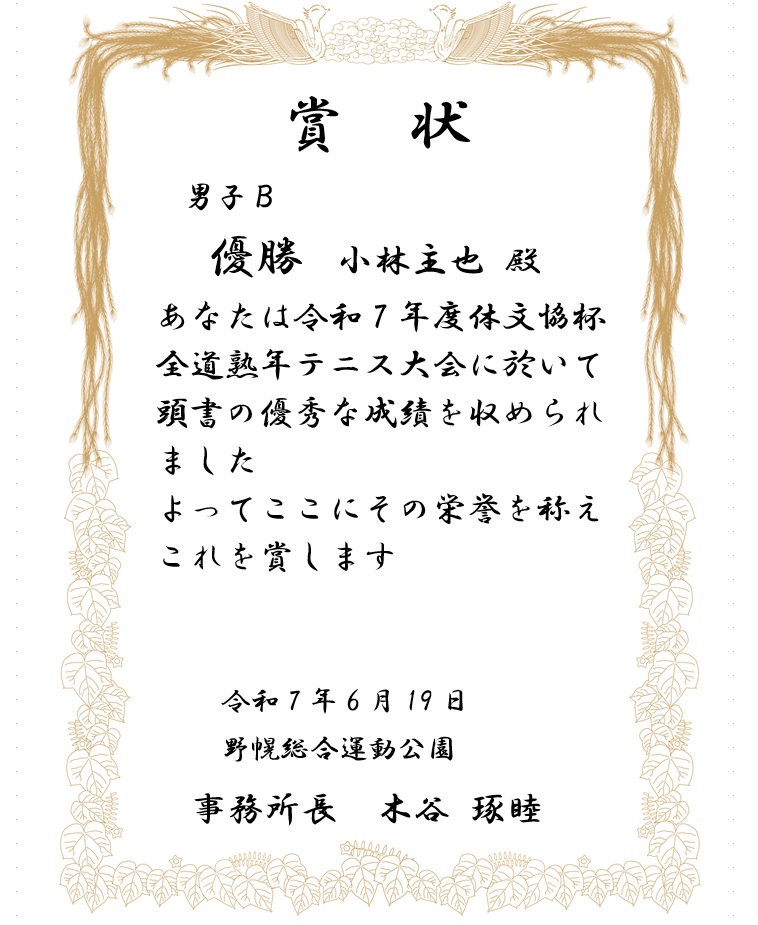 賞 状
男子B
優勝 小林主也 殿
あなたは令和7年度体文協杯
全道熟年テニス大会に於いて
頭書の優秀な成績を収められ
ました
よってここにその栄誉を称え
これを賞します
令和7年6月19日
野幌総合運動公園
事務所長 木谷 琢睦